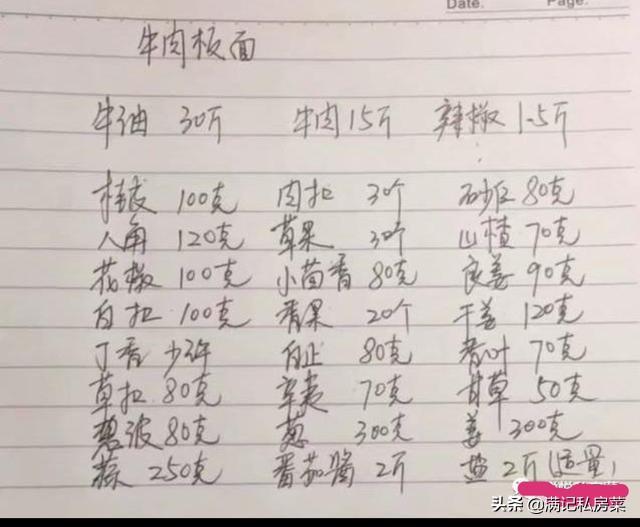 Date. Page.
牛肉板面
牛油 30斤 牛肉 15斤 辣椒 1.5斤
桂皮 100克 肉扣 3个 砂仁 80克
八角 120克 草果 30个 山楂 70克
花椒 100克 小茴香 80克 良姜 90克
白扣 100克 香果 20个 干姜 120克
丁香 少许 白止 80克 香叶 70克
草扣 80克 辛夷 70克 甘草 50克
波 80克 葱 300克 姜 300克
蒜 250克 番茄酱 2斤 盐 2斤(适量)
头条@满记私房菜